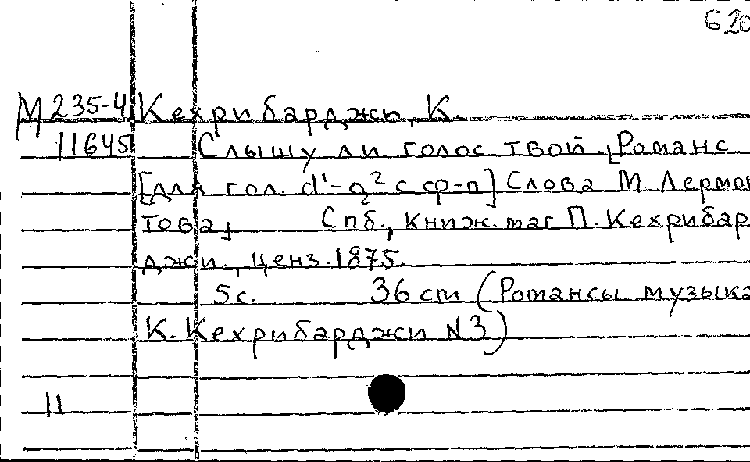 620
М 235-4 Кехрибарджи, К.
11645 Слышу ли голос твой. Романс
[для гол. d¹-g² с ф-п] Слова М. Лермон
това, Спб., книж. маг. П. Кехрибар
джи, ценз. 1875.
5с. 36 cm (Романсы музыка
К. Кехрибарджи N3)
11